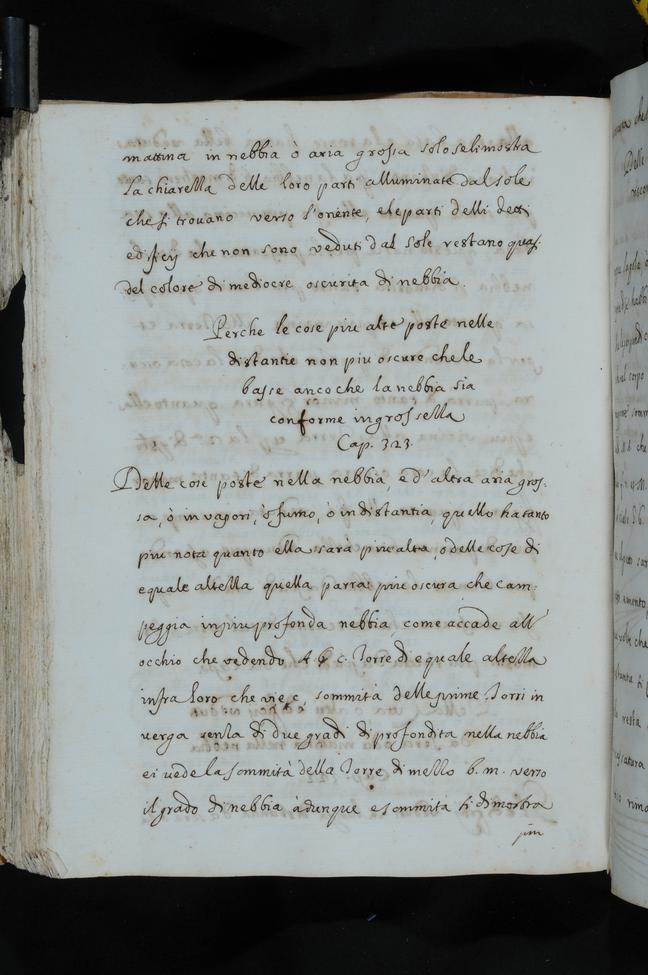 mattina in nebbia ò aria grossa solo seli mostra
la chiarella delle loro parti alluminate dal sole
che si trovano verso l'onente, e le parti delli detti
edificij che non sono veduti dal sole restano quasi
del colore di mediocre oscurita di nebbia.
Perche le cose piu alte poste nelle
distantie non piu oscure che le
basse anco che la nebbia sia
conforme in grossella
Cap. 323.
Delle cose poste nella nebbia, e d'altra aria gros:
sa, ò in vapori, ò fumo, ò in distantia, quello ha tanto
piu nota quanto ella sarà piu alta, o delle cose di
equale altella quella parra piu oscura che cam:
peggia in piu profonda nebbia, come accade all'
occhio che vedendo A b c. Torre di equale altella
infra loro che vie c, sommità delle prime Torri in
verga
di due gradi di profondita nella nebbia
ei vede la sommità della Torre di mello b. m. verso
il grado di nebbia adunque e sommità ti dimostra
piu